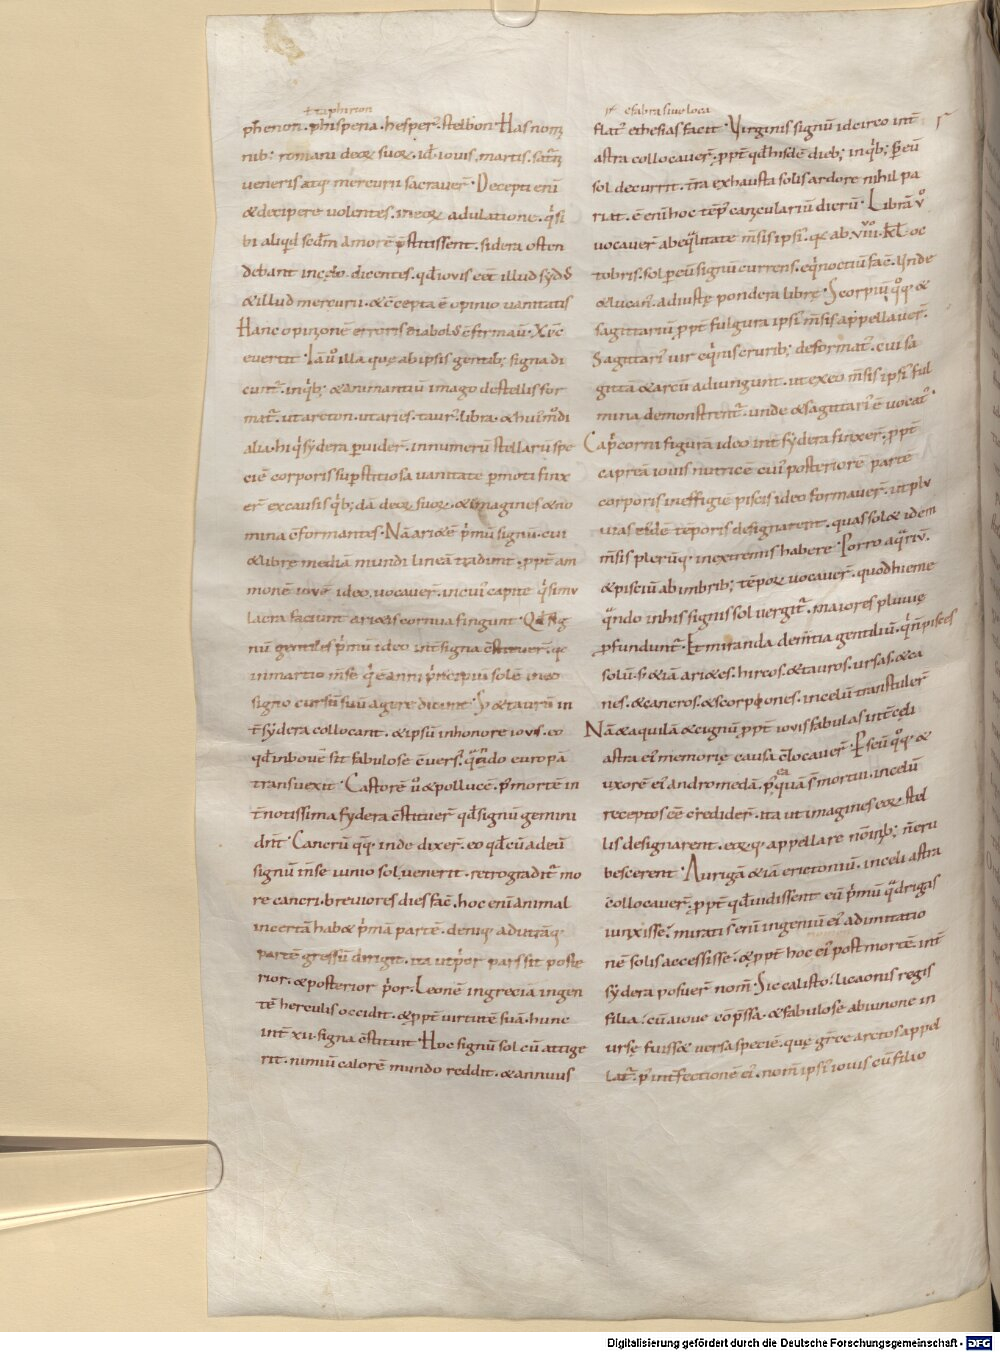 ł euphirion
phenon. phispena. hesper᷒. stelbon. Has nom̅
nib; romani deoꝝ suoꝝ. id̅. iouis. martis. sat̅n
ueneris atq; mercurii sacrauer̅. Decepti eni̅
& decipere uolentes. in eoꝝ adulatione. q'si
bi aliqd sed̅m amore̅ p̅stitissent. sidera osten
debant in cęlo. dicentes. qd̅ iouis e̅et illud syd᷒
& illud mercurii. & c̅cepta e̅ opinio uanitatis
Hanc opinione̅ erroris diabol᷒ c̅firmau̅. Xp̅c
euertit. Ia̅ ů illa quę ab ipsis gentib; signa di
cunt᷒. in q'b; & animantiu̅ imago de stellis for
mat᷒. ut arcton. ut aries. taur᷒. libra. & hui᷒mo̅di
alia. hi q' sydera puider̅. in numeru̅ stellaru̅ spe
cie̅ corporis sup̅stitiosa uanitate p̅moti finx
er̅. ex causis q'b;da̅ deoꝝ suoꝝ. & imagines & no
mina c̅formantes. Na̅ ari&e̅ p'mu̅ signu̅. cui
& librę media̅ mundi linea̅ tradunt. ppt̅ am
mone̅ ioue̅ ideo uocauer̅. in cui᷒ capite q' simu
lacra faciunt ari&is cornua fingunt. Qd̅ sig
nu̅ gentiles p'mu̅ ideo int̅ signa c̅stituer̅. qa
in martio m̅se q' e̅ anni p'ncipiu̅ sole̅ in eo
signo cursu̅ suu̅ agere dicunt. S; & tauru̅ in
t̅ sydera collocant. & ipsu̅ in honore iouis. eo
qd̅ in boue̅ sit fabulose c̅uers᷒. qn̅do europa̅
transuexit. Castore̅ ů & polluce̅. p̅ morte̅ in
t̅ notissima sydera c̅stituer̅ qd̅ signu̅ gemini
din̅t. Cancru̅ qq. inde dixer̅. eo qd̅ cu̅ ad eu̅
signu̅ in̅se iunio sol uenerit. retrogradit᷒ mo
re cancri. breuiores dies fac̅. hoc eni̅ animal
incerta̅ hab& p'ma̅ parte̅. deniq; ad utra̅q;
parte̅ gressu̅ dirigit. ita ut p'or pars sit poste
rior. & posterior p'or. Leone̅ in grecia̅ ingen
te̅ hercules occidit. & ppt̅ uirtute̅ sua̅. hunc
int̅ xii. signa c̅stituit. Hoc signu̅ sol cu̅ attige
rit. nimiu̅ calore̅ mundo reddit. & annuus
flat᷒ ethesias facit. Virginis signu̅ idcirco int̅
astra collocauer̅. ppt̅ qd̅ hisde̅ dieb; in q'b; p eu̅
sol decurrit. t̅ra exhausta solis ardore nihil pa
riat. e̅ eni̅ hoc te̅p᷒ caniculariu̅ dieru̅. Libra̅ ů
uocauer̅ ab eq̅litate m̅sis ipsi᷒. qa ab .viii. kl̅. oc
tobris. sol p eu̅ signu̅ currens. eq'noctiu̅ fac̅. Unde
& lucan᷒. ad iustę pondera librę. Scorpiu̅ qq. &
sagittariu̅. ppt̅ fulgura ipsi᷒ m̅sis appellauer̅.
Sagittari᷒ uir eq'nis crurib; deformat᷒. cui sa
gitta̅ & arcu̅ adiungunt. ut ex eo m̅sis ipsi᷒ ful
mina demonstrent᷒. unde & sagittari᷒ e̅ uocat᷒.
Cap'corni figura̅ ideo int̅ sydera finxer̅. ppt̅
caprea̅ iouis nutrice̅ cui᷒ posteriore̅ parte̅
corporis in effigie̅ piscis ideo formauer̅. ut plu
uias ei᷒de̅ te̅poris designarent. quas sol & idem
m̅sis pleru̅q; in extremis habere. Porro aq̅riu̅.
& pisciu̅ ab imbrib; te̅poꝝ uocauer̅. quod hieme
qn̅do in his signis sol uergit᷒. maiores pluuię
pfundunt᷒. Et miranda dem̅tia gentiliu̅. q' n̅ pisces
solu̅. s; & ia̅ ari&es. hircos. & tauros. ursas. & ca
nes. & cancros. & scorpiones. in celu̅ transtuler̅
Na̅ & aquila̅ & cignu̅. ppt̅ iouis fabulas int̅ cęli
astra ei᷒ memorię causa c̅locauer̅. Pseu̅ qq. &
uxore̅ ei᷒ andromeda̅. p᷒ea qua̅ s̅ mortui. in celu̅
receptos e̅e credider̅. ita ut imagines eoꝝ stel
lis designarent. eoꝝq; appellare no̅inib; n̅ eru
bescerent. Auriga̅ & ia̅ erictoniu̅. in celi astra
collocauer̅. ppt̅ qd̅ uidissent eu̅ p'mu̅ q̅drigas
iunxisse. mirati s̅ eni̅ ingeniu̅ ei᷒ ad imitatio
ne̅ solis accessisse. & ppt̅ hoc ei᷒ post morte̅. int̅
sydera posuer̅ nom̅. Sic calisto. licaonis regis
filia. cu̅ a ioue co̅p̅ssa. & fabulose ab iunone in
ursę fuiss& uersa specie̅. quę gr̅ce arctos appel
lat᷒. p' int̅fectione̅ ei᷒. nom̅ ipsi᷒ iouis cu̅ filio
Digitalisierung gefördert durch die Deutsche Forschungsgemeinschaft - DFG